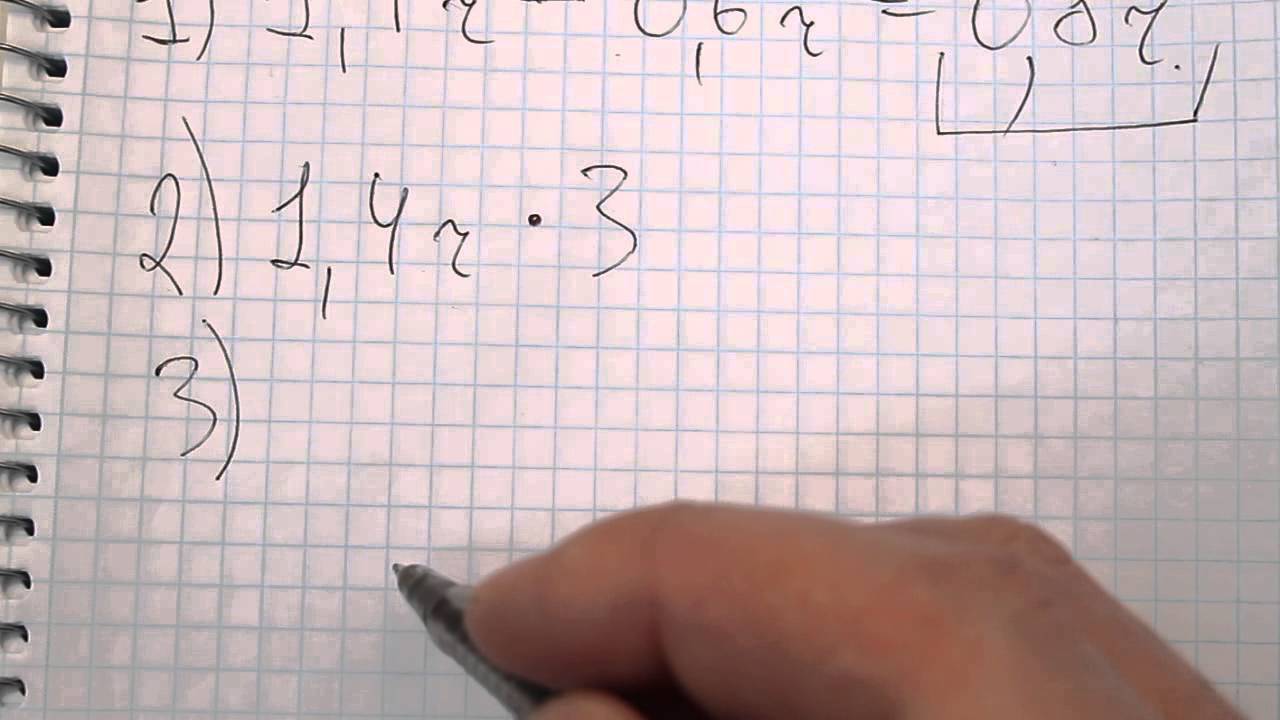 1) 1,4 г - 0,6 г = 0,8 г.
2) 1,4 г · 3
3)